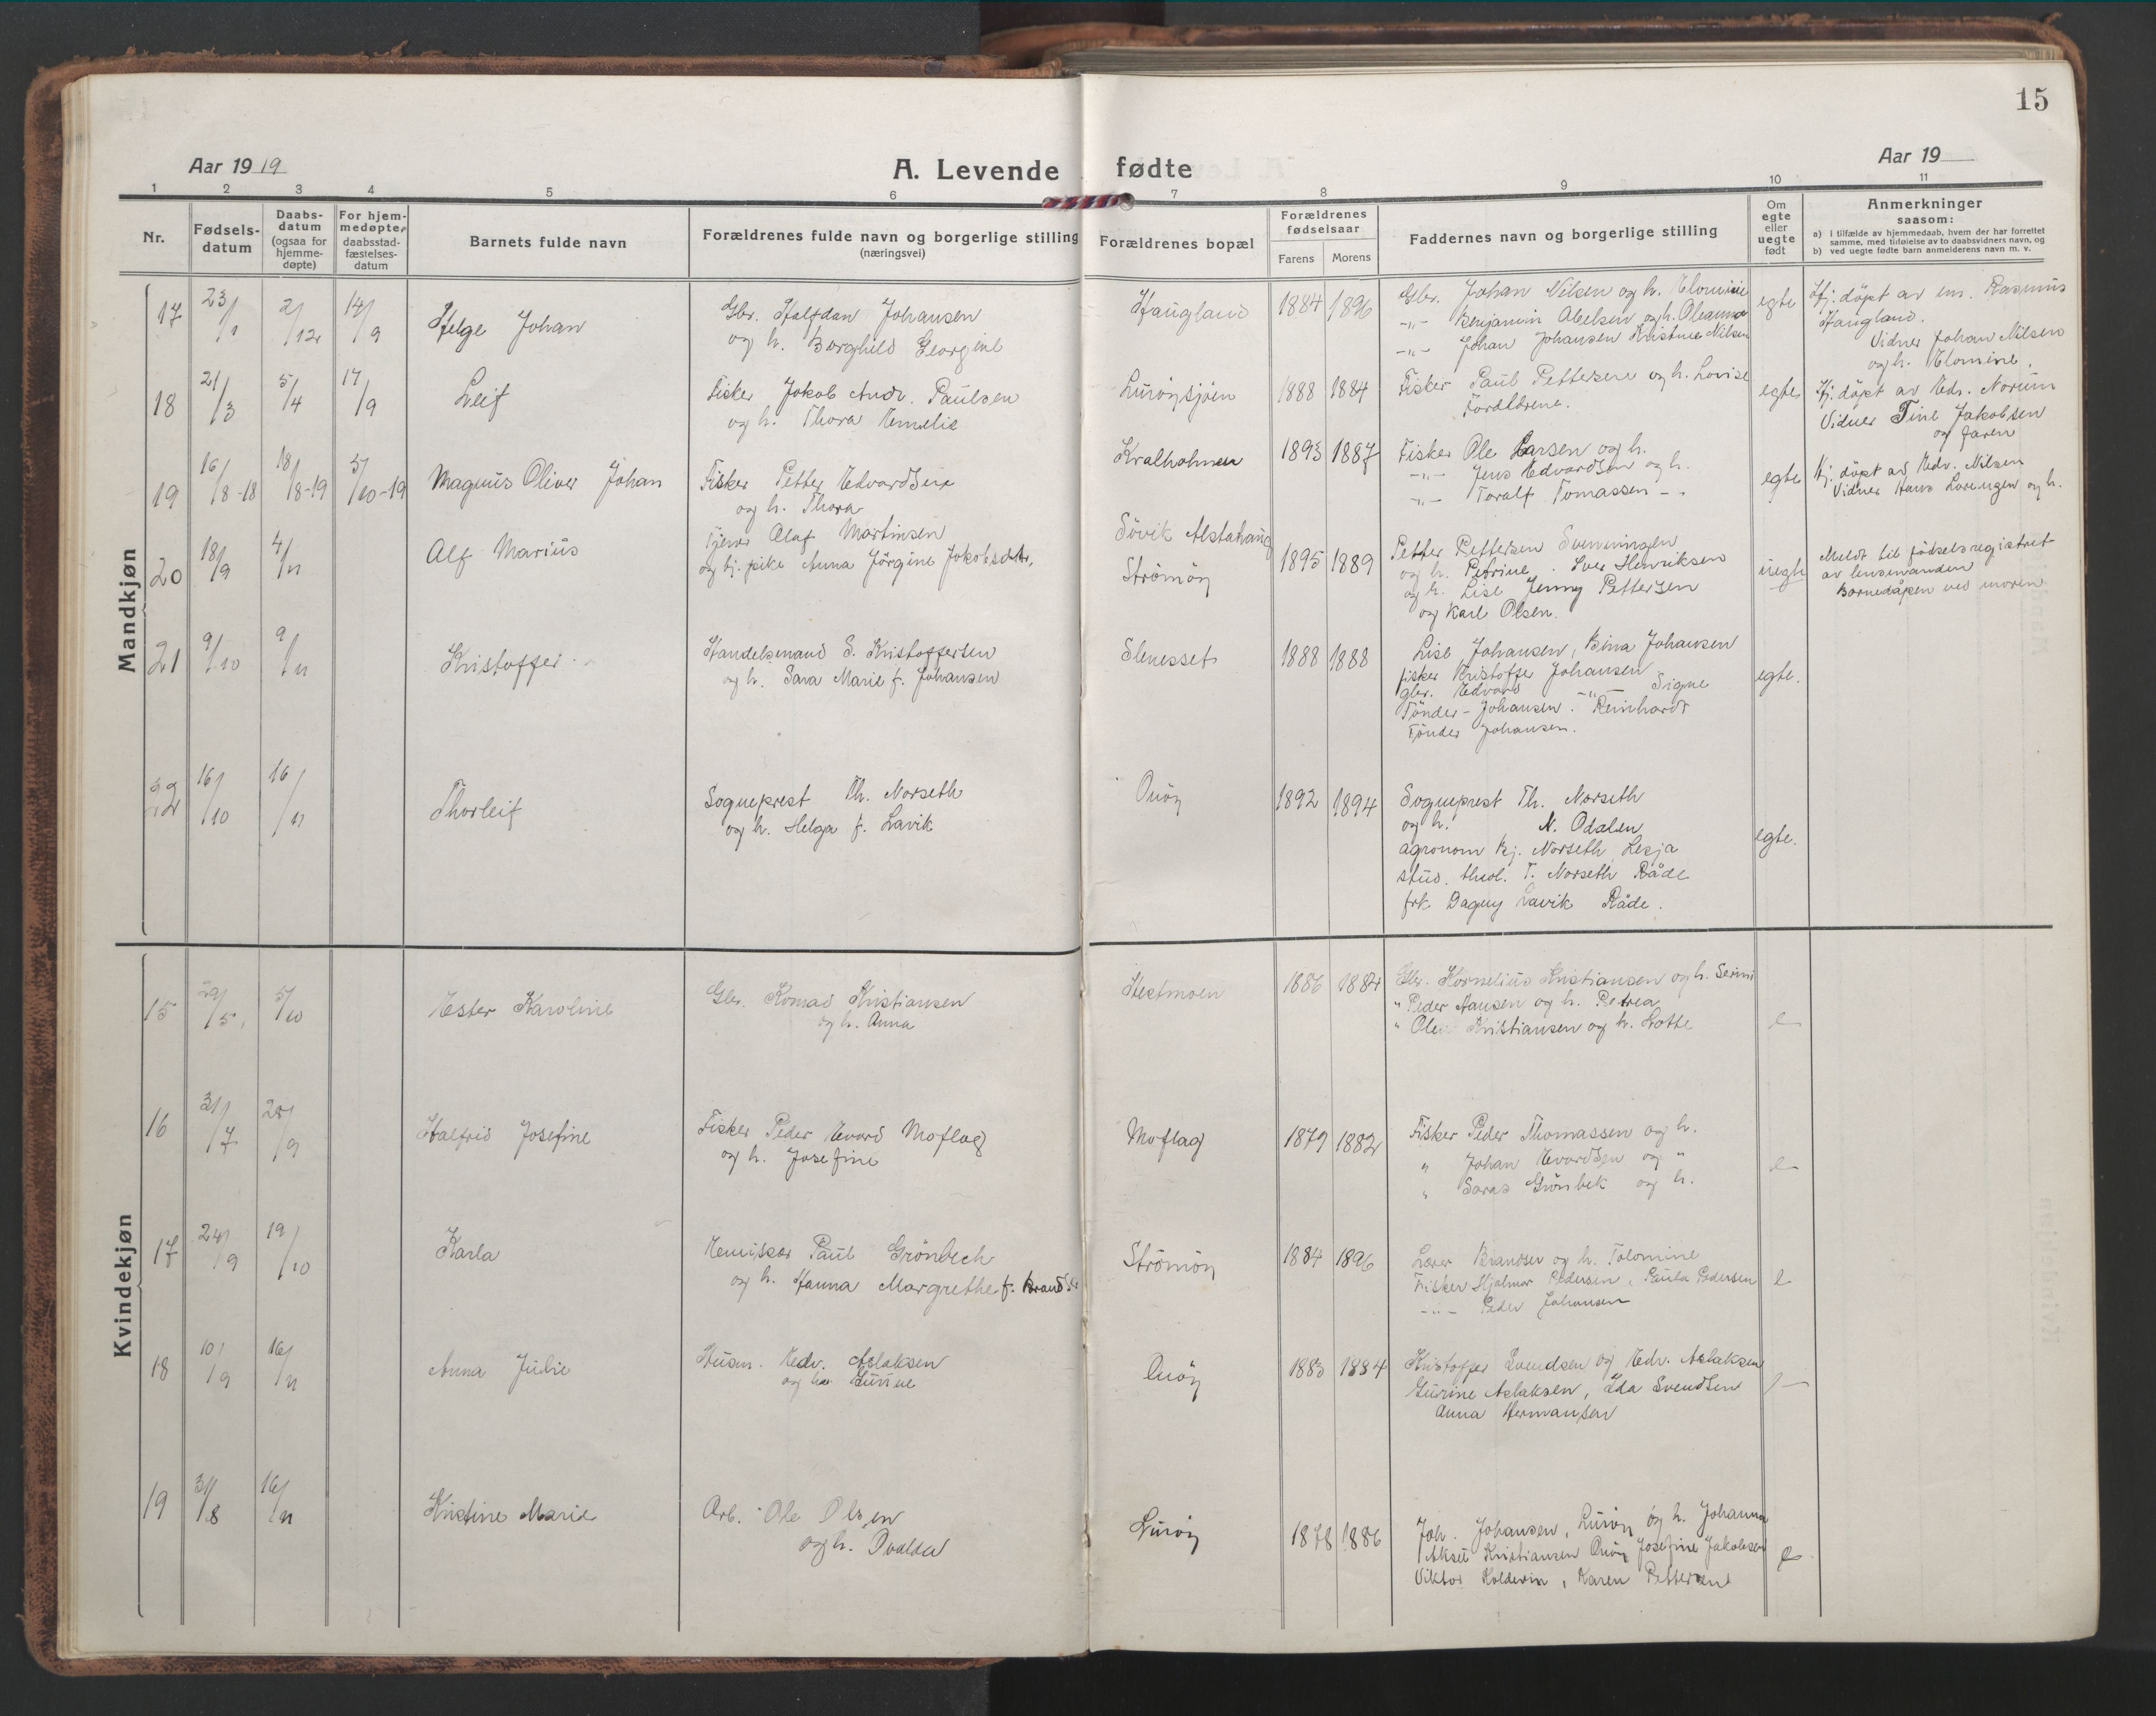 15
Aar 1919
A. Levende fødte
Aar 19
1 2 3 4 5 6 7 8 9 10 11
Nr.
Fødsels-
datum
Daabs-
datum
(ogsaa for
hjemme-
døpte)
For hjem-
medøpte,
daabsstad-
fæstelses-
datum
Barnets fulde navn
Forældrenes fulde navn og borgerlige stilling
(næringsvei)
Forældrenes bopæl
Forældrenes
fødselsaar
Farens Morens
Faddernes navn og borgerlige stilling
Om
egte
eller
uegte
født
Anmerkninger
saasom:
a) i tilfælde av hjemmedaab, hvem der har forrettet
samme, med tilføielse av to daabsvidners navn, og
b) ved uegte fødte barn anmelderens navn m. v.
Mandkjøn
17 23/1 2/12 14/9 Helge Johan
Gbr. Halfdan Johansen
og h. Borghild Georgine
Haugland 1884 1896
Gbr. Johan Nilsen og h. Elomine
-"- Benjamin Abelsen og h. Oleanna
-"- Johan Johansen Kristine Nilsen
egte
Hj. döpt av em. Rasmus
Haugland.
Vidner Johan Nilsen
og h. Elomine.
18 21/3 5/4 17/9 Leif
Fisker Jakob Andr. Paulsen
og h. Thora Emelie
Luröysjöen 1888 1884
Fisker Paul Pettersen og h. Lovise
Foreldrene.
egte
Hj. döpt av Edv. Norum
Vidner Tine Jakobsen
og faren
19 16/8-18 18/8-19 5/10-19 Magnus Oliver Johan
Fisker Petter Edvardsen
og h. Thora
Kvalholmen 1893 1887
Fisker Ole Larsen og h.
-"- Jens Edvardsen og h.
-"- Toralf Tomassen -"-
egte
Hj. döpt av Edv. Nilsen
Vidner Hans Lorentzen og h.
20 18/9 4/11 Alf Marius
Tjener Olaf Martinsen
og tj. pike Anna Jörgine Jakobsdtr.
Sövik Alstahaug
Strömöy
1895 1889
Petter Pettersen Svenningen
og h. Petrine. Iver Henriksen
og h. Lise Jenny Pettersen
og Karl Olsen.
uegte
Meldt til födselsregistret
av lensmanden
Barnedåpen ved moren
21 9/10 9/11 Kristoffer
Handelsmand S. Kristoffersen
og h. Sara Marie f. Johansen
Slenesset 1888 1888
Lise Johansen, Bina Johansen
fisker Kristoffer Johansen
gbr. Edvard -"- Signe
Tönder-Johansen. Reinhardt
Tönder Johansen.
egte.
22 16/10 16/11 Thorleif
Sogneprest Th. Norseth
og h. Helga f. Lavik
Onöy 1892 1894
Sogneprest Th. Norseth
og h. N. Odalen
agronom Kj. Norseth, Lesja
stud. theol. T. Norseth Råde
frk Dagny Lavik Råde.
egte.
Kvindekjøn
15 29/5 5/10 Ester Karoline
Gbr. Konrad Kristiansen
og h. Anna
Hestmoen 1886 1884
Gbr. Kornelius Kristiansen og h.
" Peder Hansen og h. Petrea
" Ole Kristiansen og h. Lotte
e
16 31/7 28/9 Halfrid Josefine
Fisker Peder Evard Moflag
og h. Josefine
Moflag 1879 1882
Fisker Peder Thomassen og h.
" Johan Evardsen og "
" Grönbek og h.
e
17 24/9 19/10 Karla
Paul Grönbech
og h. Hanna Margrethe f.
Strömöy 1884 1896
Lærer og h. Tolomine
Fisker Hjalmar Pedersen, Paula Pedersen
-"- Peder Johansen
e
18 10/9 16/11 Anna Julie
Husm. Edv. Aslaksen
og h. Gurine
Onöy 1883 1884
Kristoffer Svendsen og Edv. Aslaksen
Gurine Aslaksen, Ida Svendsen
Anna Hermansen
19 31/8 16/11 Kristine Marie
Arb. Ole Olsen
og h. Ovalda
Luröy 1878 1886
Joh. Johansen, Luröy og h. Johanna
Aksel Kristiansen Onöy Josefine Jakobsen
Viktor Kolderin, Karen Pettersen
e